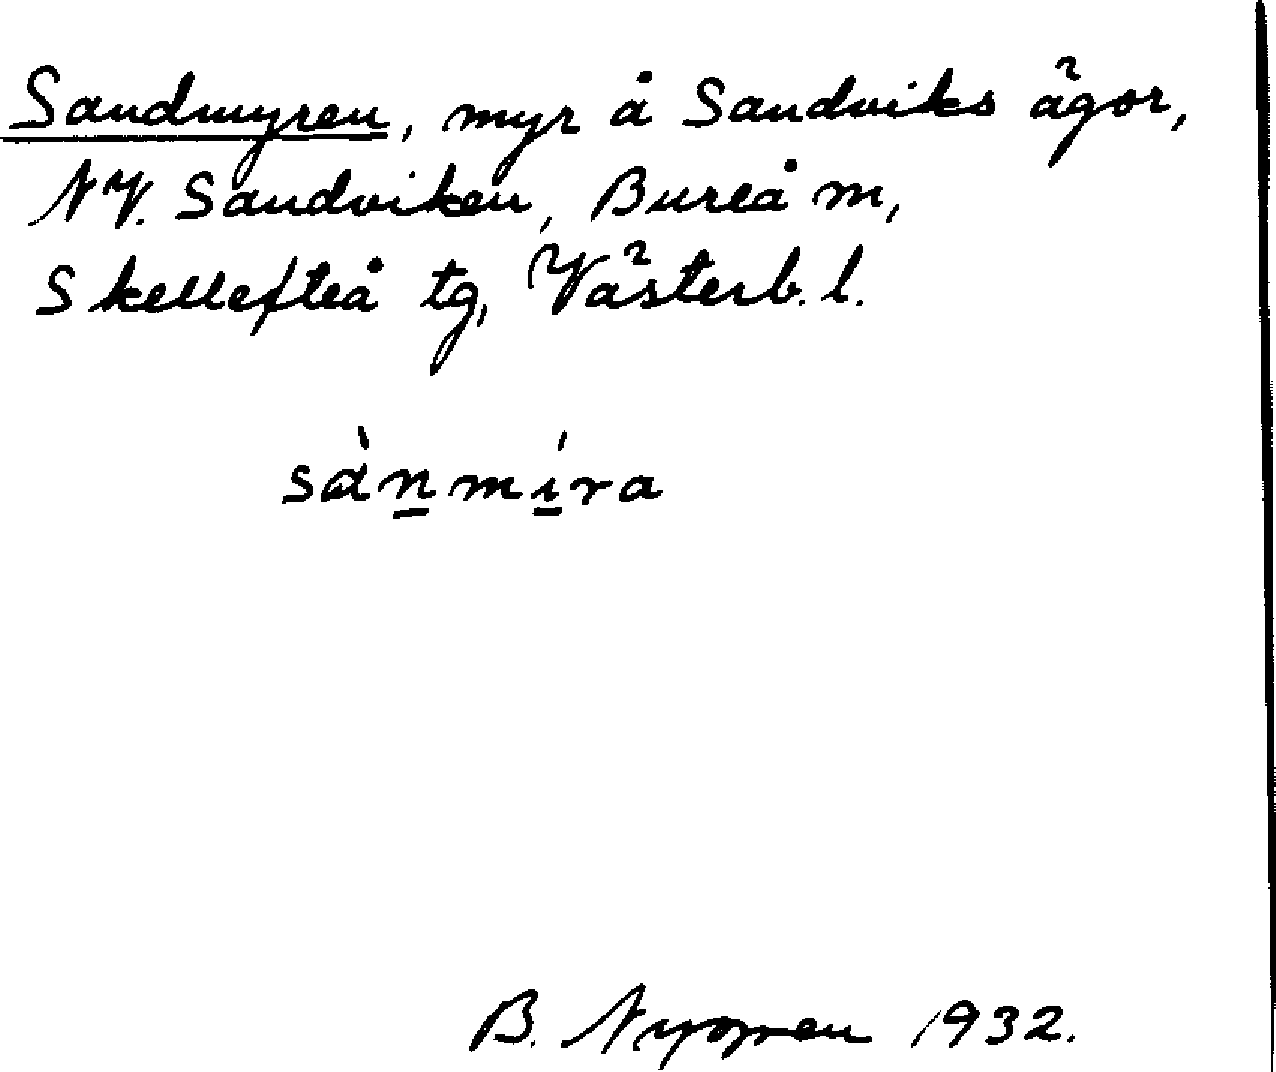 Sandmyren, myr å Sandviks ägor,
NV. Sandviken, Bureå m,
Skellefteå tg, Västerb. l.
sànmíra
B. 1932.